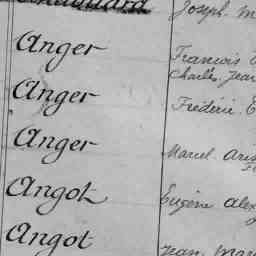 Joseph. M
Anger
François
Charles, Jean
Anger
Frédéric. E
Anger
Marcel. Aris
Angot
Eugène Alex
Angot
Jean. Mar